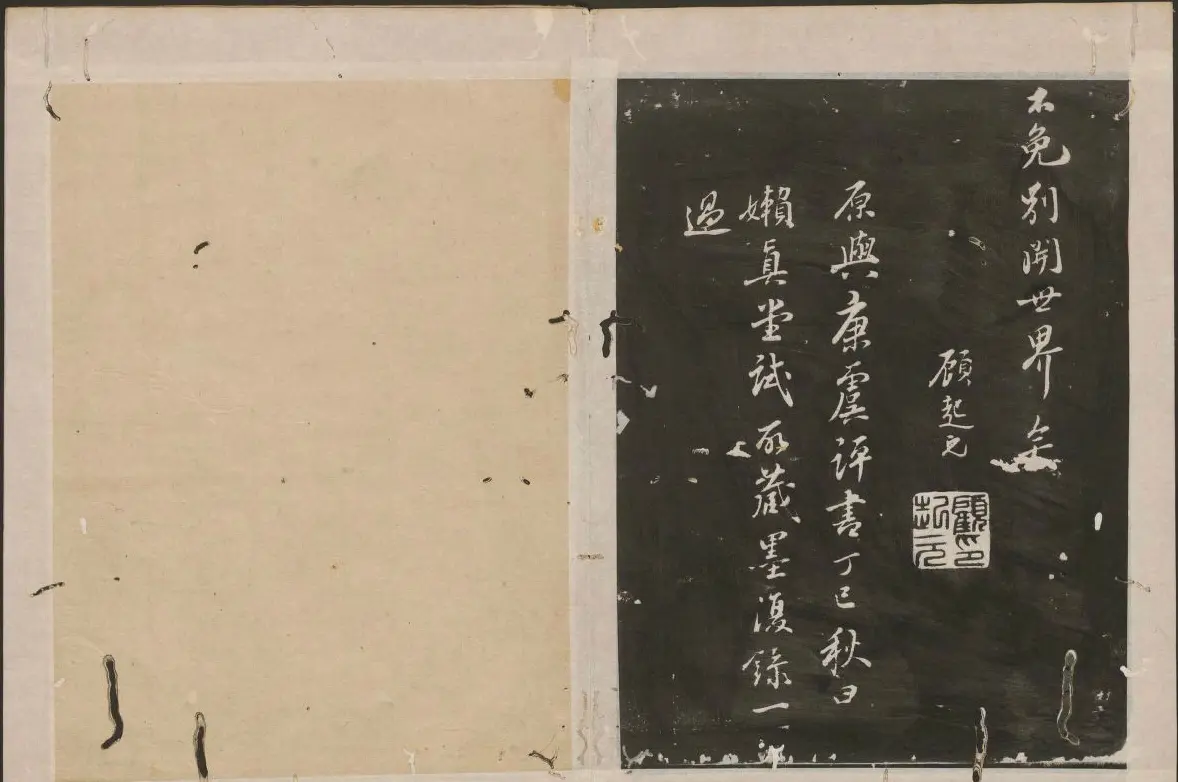 不免別開世界
顧起元
顧起元印
原與康虞評書丁巳秋日
嬾真堂試所藏墨復錄一
過